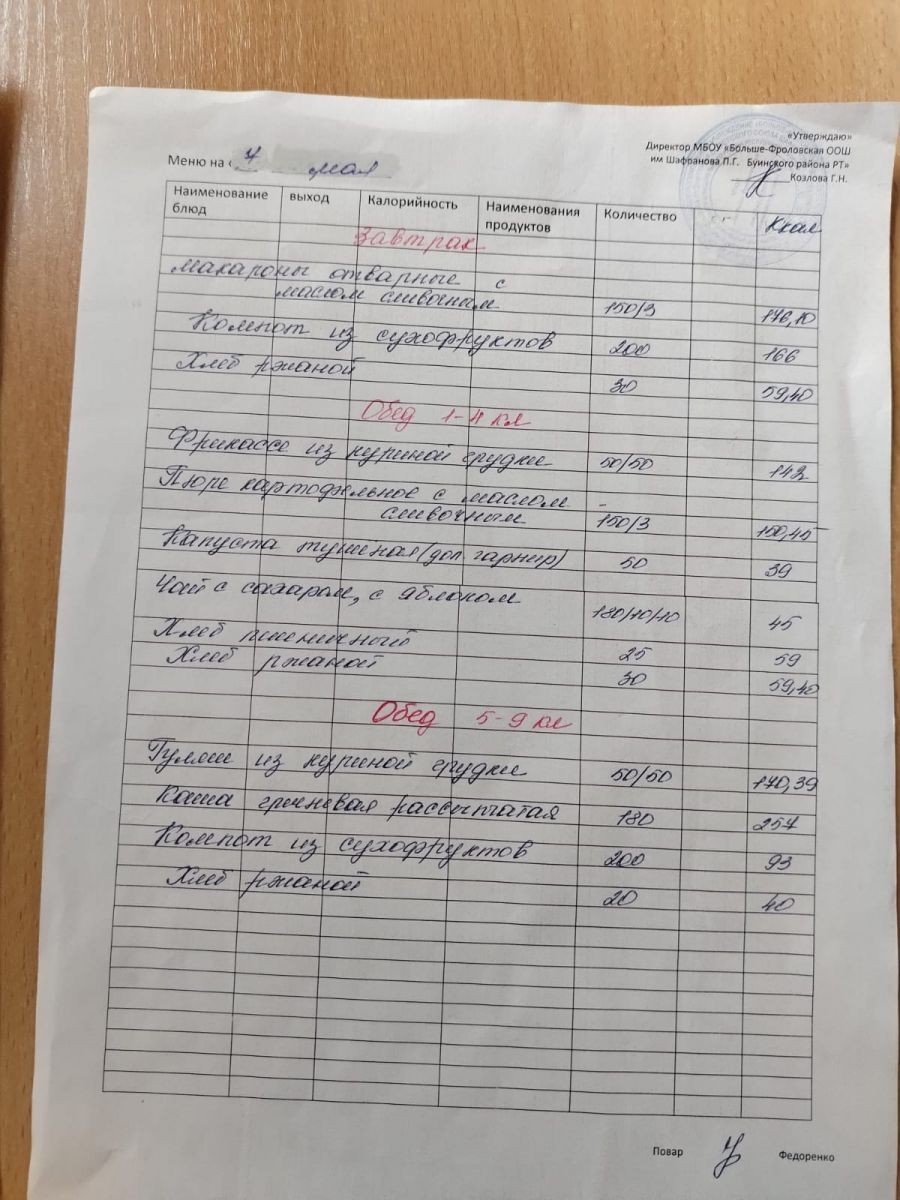 «Утверждаю»
Директор МБОУ «Больше-Фроловская ООШ
им Шафранова П.Г. Буинского района РТ»
Козлова Г.Н.
Меню на « 7 мая
Наименование блюд выход Калорийность Наименования продуктов Количество Ккал
Завтрак
Макароны отварные с
маслом сливочным 150/3 176,10
Компот из сухофруктов 200 166
Хлеб ржаной 30 59,40
Обед 1-4 кл
Фрикассе из куриной грудки 50/50 142
Пюре картофельное с маслом -
сливочным 150/3 150,45
Капуста тушеная (доп. гарнир) 50 39
Чай с сахаром, с яблоком 180/10/10 45
Хлеб пшеничный 25 59
Хлеб ржаной 30 59,40
Обед 5-9 кл
Гуляш из куриной грудки 50/50 170,39
Каша гречневая рассыпчатая 180 257
Компот из сухофруктов 200 93
Хлеб ржаной 20 40
Повар Федоренко